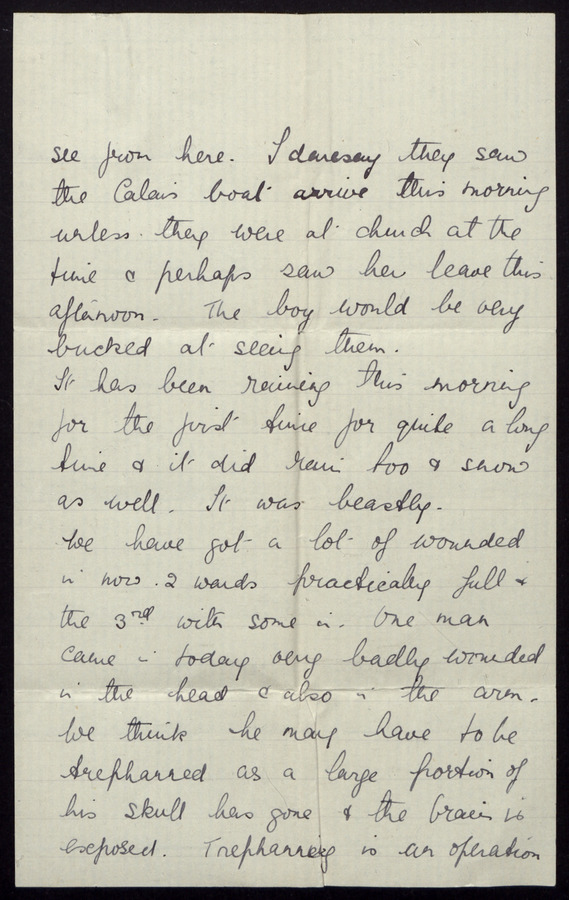 see from here. I daresay they saw
the Calais boat arrive this morning
unless they were at church at the
time & perhaps saw her leave this
afternoon. The boy would be very
bucked at seeing them.
It has been raining this morning
for the first time for quite a long
time & it did rain too & snow
as well. It was beastly.
We have got a lot of wounded
in now. 2 wards practically full &
the 3rd with some in. One man
came in today very badly wounded
in the head & also in the arm.
We think he may have to be
trepharred as a large portion of
his skull has gone & the brain is
exposed. Trepharring is an operation